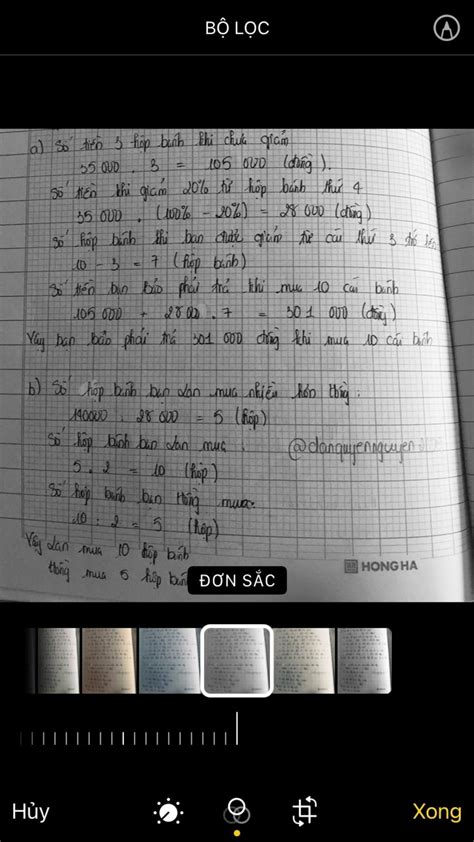 BỘ LỌC
a) Số tiền 3 hộp bánh khi chưa giảm
35 000 . 3 = 105 000 (đồng).
Số tiền khi giảm 20% từ hộp bánh thứ 4
35 000 . (100% - 20%) = 28 000 (đồng)
Số hộp bánh khi bạn được giảm từ cái thứ 3 trở lên
10 - 3 = 7 (hộp bánh)
Số tiền bạn Bảo phải trả khi mua 10 cái bánh
105 000 + 28 00 . 7 = 301 000 (đồng)
Vậy bạn bảo phải trả 301 000 đồng khi mua 10 cái bánh
b) Số hộp bánh bạn Lan mua nhiều hơn Hồng.
140000 : 28 000 = 5 (hộp)
Số hộp bánh bạn Lan mua.
@danquyennguyen
5 . 2 = 10 (hộp)
Số hộp bánh bạn Hồng mua.
10 : 2 = 5 (hộp)
Vậy Lan mua 10 hộp bánh
Hồng mua 5 hộp bánh
HONG HA
ĐƠN SẮC
Hủy
Xong